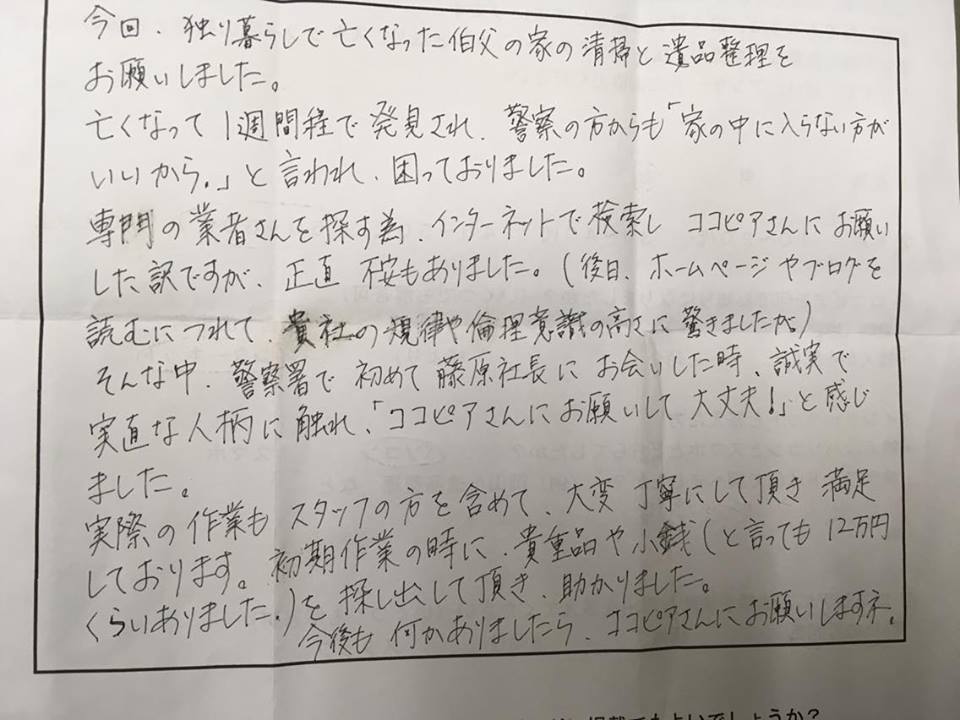 今回、独り暮らしで亡くなった伯父の家の清掃と遺品整理を
お願いしました。
亡くなって1週間程で発見され、警察の方からも「家の中に入らない方が
いいから。」と言われ、困っておりました。
専門の業者さんを探す為、インターネットで検索し ココピアさんにお願い
した訳ですが、正直 不安もありました。(後日、ホームページやブログを
読むにつれて、貴社の規律や倫理意識の高さに驚きましたが)
そんな中、警察署で初めて藤原社長にお会いした時、誠実で
実直な人柄に触れ、「ココピアさんにお願いして大丈夫!」と感じ
ました。
実際の作業も スタッフの方を含めて、大変丁寧にして頂き 満足
しております。初期作業の時に、貴重品や小銭(と言っても12万円
くらいありました。)を探し出して頂き、助かりました。
今後も何かありましたら、ココピアさんにお願いしますネ。
掲載でもよいでしょうか?